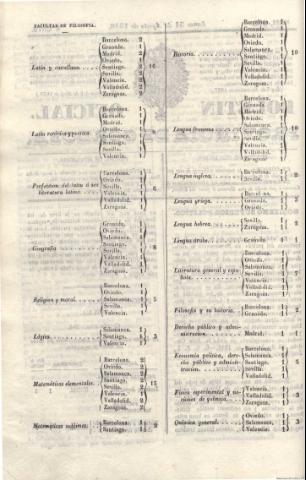 FACULTAD DE FILOSOFIA.
Latin y castellano
Barcelona. 2
Granada. 2
Madrid. 2
Oviedo.
Santiago. 2
Sevilla.
Valencia.
Valladolid.
Zaragoza.
16
Barcelona.
Granada.
Madrid.
Oviedo.
Salamanca.
Santiago.
Sevilla.
Valencia. 1
Perfeccion del latin ó sea literatura latina.
Barcelona. 1
Oviedo. 1
Sevilla. 1
Valencia. 1
Valladolid. 1
Zaragoza. 1
6
Geografía
Granada. 1
Oviedo. 1
Salamanca. 1
Santiago. 1
Sevilla. 1
Valencia. 1
Valladolid. 1
Zaragoza. 1
8
Religion y moral.
Barcelona. 1
Oviedo. 1
Salamanca. 1
Valladolid. 1
Zaragoza. 1
5
Lógica.
Salamanca. 1
Santiago. 1
Valencia. 1
3
Matemáticas elementales.
Barcelona. 2
Oviedo. 2
Salamanca. 2
Santiago. 2
Sevilla.
Valencia.
Valladolid. 2
Zaragoza. 2
15
Matemáticas sublimes.
Barcelona. 1
Santiago. 1
2
Historia.
Barcelona. 1
Granada. 1
Madrid. 1
Oviedo. 1
Salamanca. 1
Santiago. 1
Sevilla. 1
Valencia. 1
Valladolid. 1
Zaragoza. 1
10
Lengua francesa
Barcelona. 1
Granada. 1
Madrid. 1
Oviedo. 1
Salamanca. 1
Santiago. 1
Sevilla. 1
Valencia. 1
Valladolid. 1
Zaragoza. 1
10
Lengua inglesa.
Barcelona. 1
Sevilla. 1
2
Lengua griega.
Granada. 1
Lengua hebrea.
Sevilla. 1
Zaragoza. 1
2
Lengua árabe.
Granada. 1
1
Literatura general y española.
Barcelona. 1
Oviedo. 1
Salamanca. 1
Sevilla. 1
Valencia. 1
Valladolid. 1
Zaragoza. 1
7
Filosofía y su historia.
Barcelona. 1
Granada. 1
Derecho público y administracion.
Madrid. 1
1
Economía política, derecho público y administracion.
Barcelona. 1
Oviedo. 1
Salamanca. 1
Santiago. 1
Sevilla. 1
5
Física esperimental y nociones de química.
Valencia. 1
Valladolid. 1
Zaragoza. 1
3
Química general.
Oviedo. 1
Salamanca. 1
Valencia. 1
3